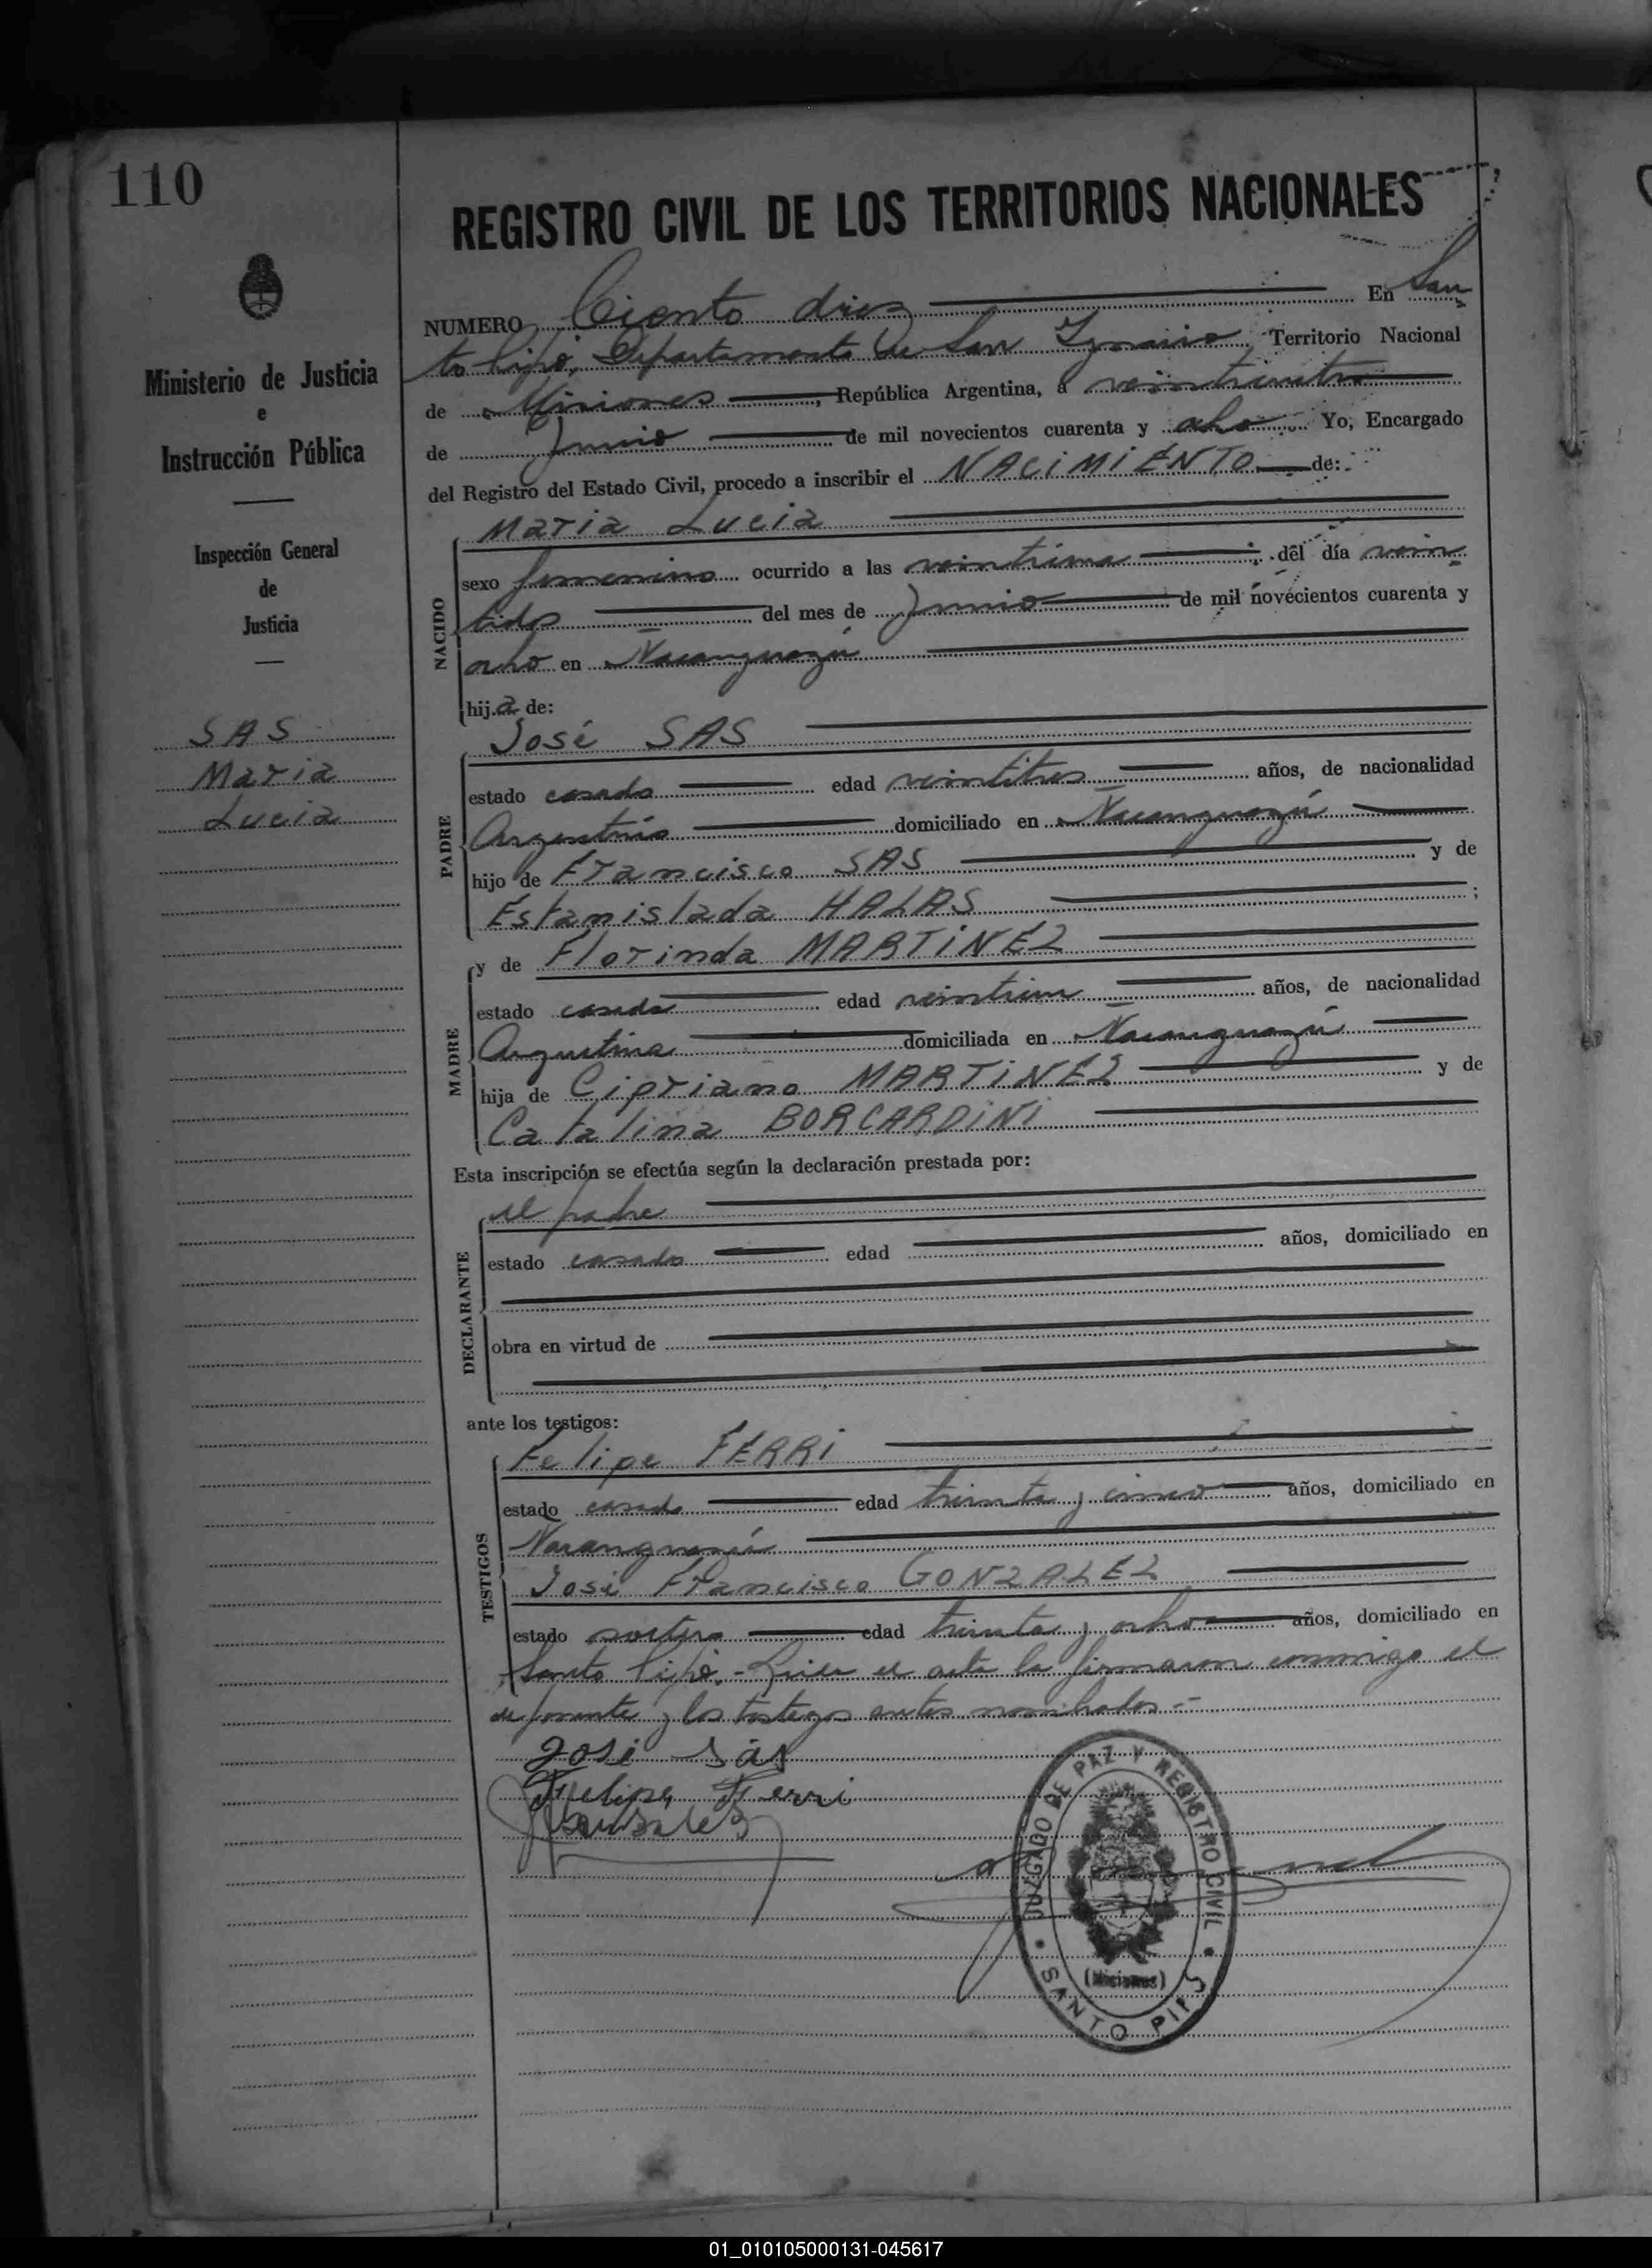 110
REGISTRO CIVIL DE LOS TERRITORIOS NACIONALES
Ministerio de Justicia
e
Instrucción Pública
Inspección General
de
Justicia
SAS
Maria
Lucia
NUMERO Ciento diez En San
to Pipó, Departamento de San Ignacio, Territorio Nacional
de Misiones, República Argentina, a veinticuatro
de Junio de mil novecientos cuarenta y ocho Yo, Encargado
del Registro del Estado Civil, procedo a inscribir el NACIMIENTO de:
NACIDO
Maria Lucia
sexo femenino ocurrido a las veintiuna del día vein
tidos del mes de Junio de mil novecientos cuarenta y
ocho en Ñacanguazú
hija de:
PADRE
José SAS
estado casado edad veintitres años, de nacionalidad
Argentino domiciliado en Ñacanguazú
hijo de Francisco SAS y de
Estanislada HALAS ;
MADRE
y de Florinda MARTINEZ
estado casada edad veintiun años, de nacionalidad
Argentina domiciliada en Ñacanguazú
hija de Cipriano MARTINEZ y de
Catalina BORCARDINI
Esta inscripción se efectúa según la declaración prestada por:
DECLARANTE
el padre
estado casado edad años, domiciliado en
obra en virtud de
ante los testigos:
TESTIGOS
Felipe FERRI
estado casado edad treinta y cinco años, domiciliado en
Ñacanguazú
José Francisco GONZALEZ
estado soltero edad treinta y ocho años, domiciliado en
Santo Pipó.- Leida el acta la firmaron conmigo el
deponente y los testigos antes nombrados.-
José Sás
Felipe Ferri
Gonzalez
JUZGADO DE PAZ Y REGISTRO CIVIL
(Misiones)
SANTO PIPÓ
01_010105000131-045617